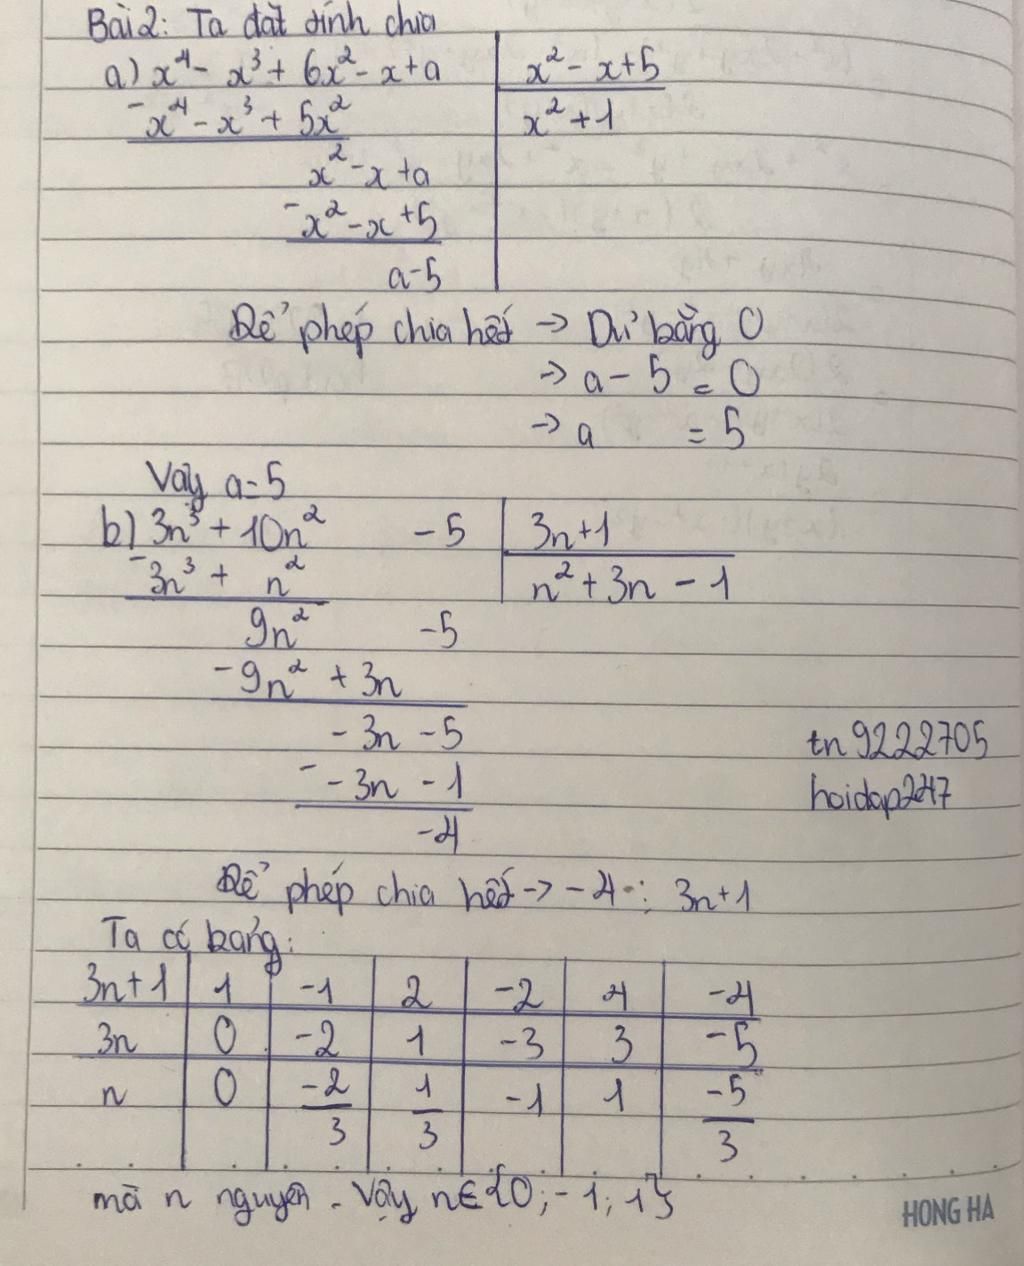 Bài 2: Ta đặt tính chia
a) x⁴ - x³ + 6x² - x + a | x² - x + 5
- x⁴ - x³ + 5x² | x² + 1
x² - x + a
- x² - x + 5
a - 5
Để phép chia hết → Dư bằng 0
→ a - 5 = 0
→ a = 5
Vậy a = 5
b) 3n³ + 10n² - 5 | 3n + 1
- 3n³ + n² | n² + 3n - 1
9n² - 5
- 9n² + 3n
- 3n - 5
- - 3n - 1
-4
tn9222705
hoidap247
Để phép chia hết → -4 ⋮ 3n + 1
Ta có bảng:
3n + 1 | 1 | -1 | 2 | -2 | 4 | -4
3n | 0 | -2 | 1 | -3 | 3 | -5
n | 0 | -2/3 | 1/3 | -1 | 1 | -5/3
mà n nguyên. Vậy n ∈ {0; -1; 1}
HONG HA